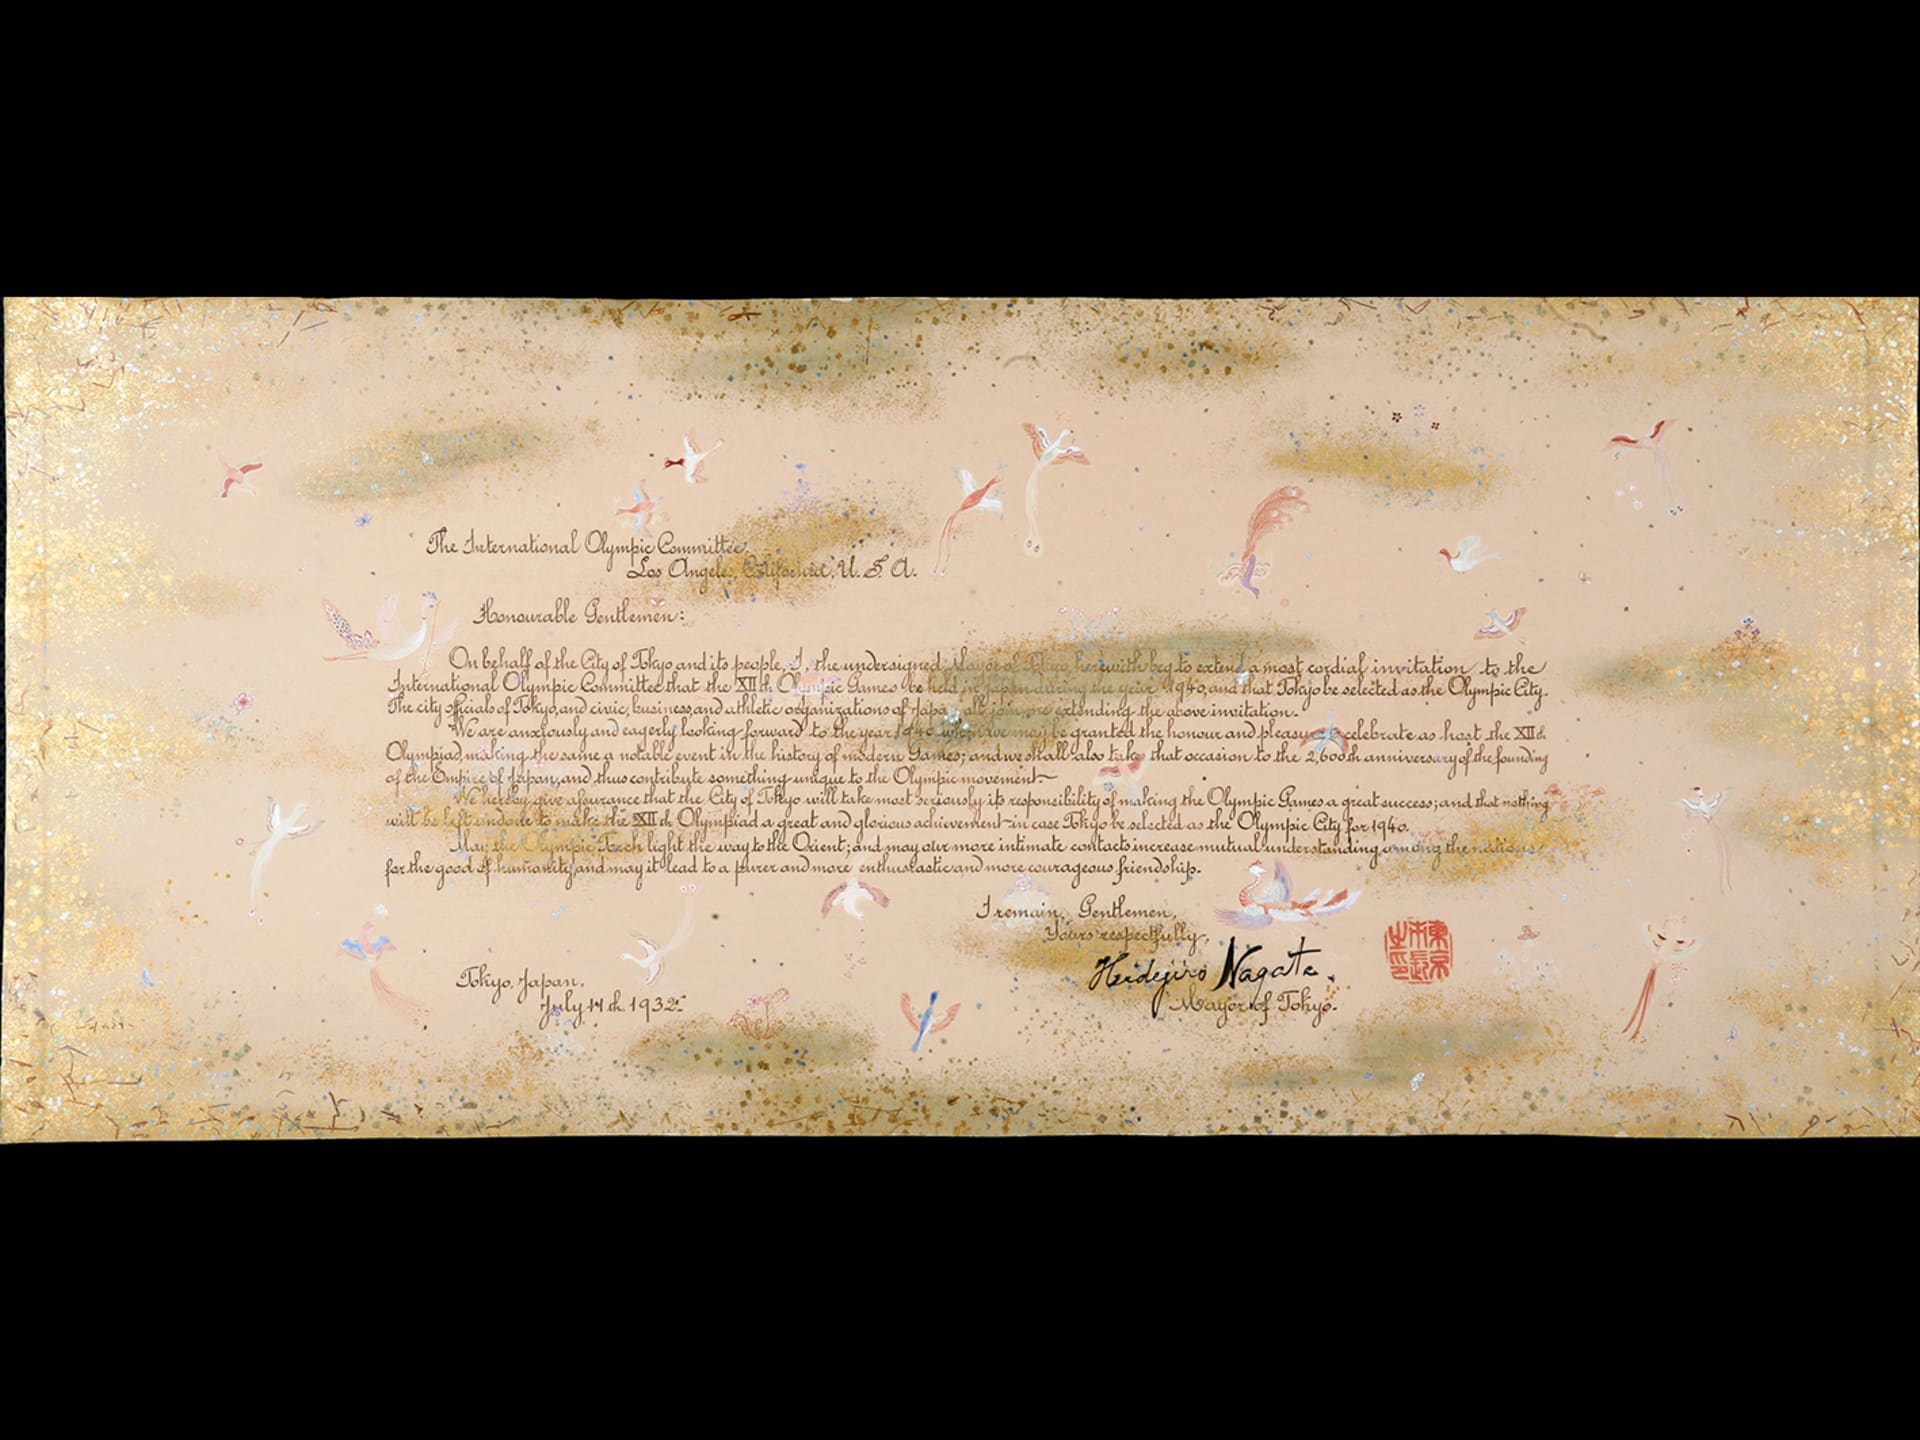 The International Olympic Committee,
Los Angeles, California, U. S. A.
Honourable Gentlemen:
On behalf of the City of Tokyo and its people, I, the undersigned Mayor of Tokyo, herewith beg to extend a most cordial invitation to the
International Olympic Committee that the XIIth Olympic Games be held in Japan during the year 1940, and that Tokyo be selected as the Olympic City.
The city officials of Tokyo, and civic, business, and athletic organizations of Japan all join me extending the above invitation.
We are anxiously and eagerly looking forward to the year 1940 when we may be granted the honour and pleasure to celebrate as host the XIIth
Olympiad, making the same a notable event in the history of modern Games; and we shall also take that occasion to the 2,600th anniversary of the founding
of the Empire of Japan, and thus contribute something unique to the Olympic movement.
We hereby give assurance that the City of Tokyo will take most seriously its responsibility of making the Olympic Games a great success; and that nothing
will be left undone to make the XIIth Olympiad a great and glorious achievement in case Tokyo be selected as the Olympic City for 1940.
May the Olympic Torch light the way to the Orient; and may our more intimate contacts increase mutual understanding among the nations
for the good of humanity, and may it lead to a purer and more enthustastic and more courageous friendship.
I remain, Gentlemen,
Yours respectfully,
Heidejiro Nagata.
Mayor of Tokyo.
東京市長之印
Tokyo, Japan.
July 17th. 1932.